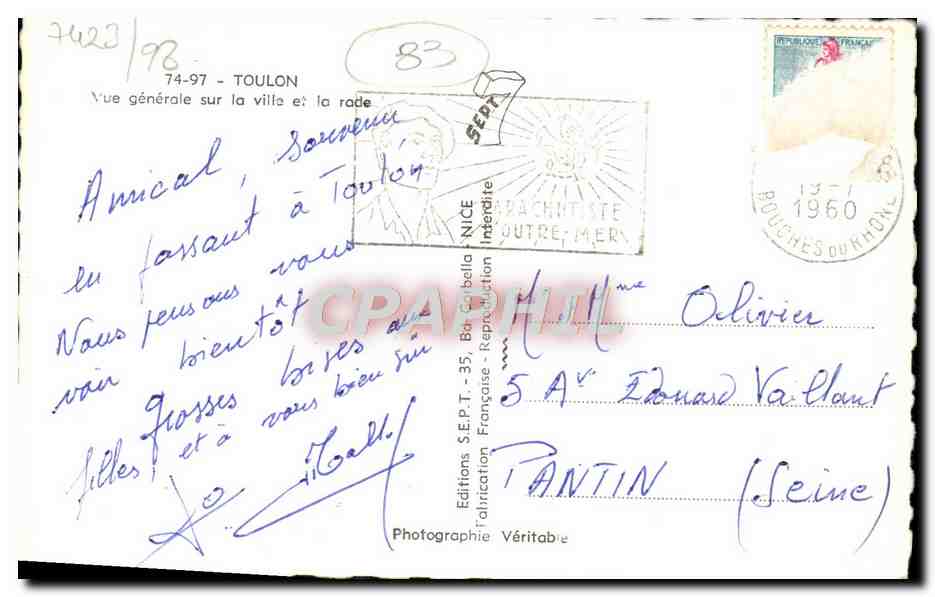 7423/98
83
74-97 - TOULON
Vue générale sur la ville et la rade
SEPT
REPUBLIQUE FRANÇAISE
19-7
1960
BOUCHES DU RHONE
PARACHUTISTE
OUTRE-MER
Amical, Souvenir
en passant à Toulon
Nous pensons vous
voir bientôt
Grosses bises aux
filles, et à vous bien sûr
M. Mme Olivier
5 Av. Edouard Vaillant
PANTIN (Seine)
Editions S.E.P.T. - 35, Bd Gorbella - NICE
Fabrication Française - Reproduction Interdite
Photographie Véritable
CPAPHIL